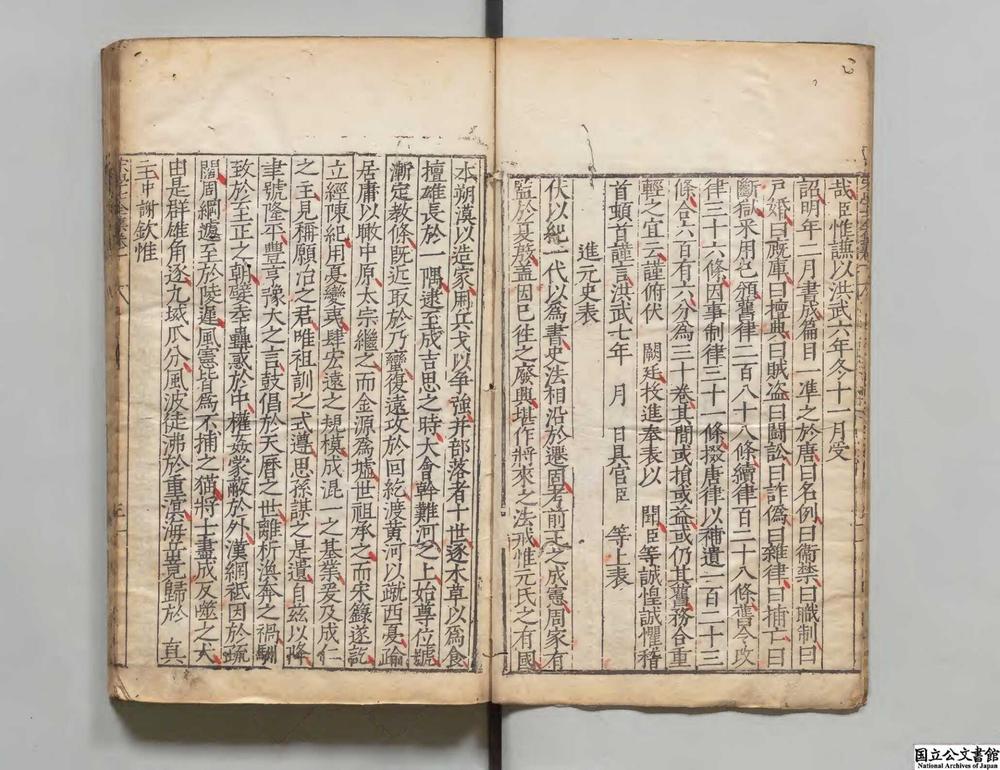 哉臣惟謙以洪武六年冬十一月受
詔明年二月書成篇目一準之於唐曰名例曰衛禁曰職制曰
戶婚曰厩庫曰擅典曰賊盗曰鬪訟曰詐偽曰雜律曰捕亡曰
斷獄采用已頒舊律二百八十八條續律百二十八條舊令改
律三十六條因事制律三十一條掇唐律以補遺一百二十三
條合六百有六分為三十卷其間或損或益或仍其舊務合重
輕之宜云謹俯伏 闕廷投進奉表以 聞臣等誠惶誠懼稽
首頓首謹言洪武七年 月 日具官臣 等上表
進元史表
伏以紀一代以為書史法相沿於遷固考前王之成憲周家有
監於夏殷盖因已徃之廢興堪作將來之法戒惟元氏之有國
本朔漠以造家用兵戈以争強并部落者十世逐水草以為食
擅雄長於一隅逮至成吉思之時大會斡難河之上始尊位號
漸定教條既近取於乃蠻復遠攻於回紇渡黄河以蹴西夏踰
居庸以瞰中原太宗繼之而金源為墟世祖承之而宋籙遂訖
立經陳紀用夏變夷肆宏遠之規模成混一之基業爰及成仁
之主見稱願治之君唯祖訓之式遵思孫謀之是遺自兹以降
聿號隆平豐亨豫大之言鼓倡於天曆之世離析渙奔之禍馴
致於至正之朝嬖幸蠱惑於中權姦蒙蔽於外漢網祇因於疏
闊周綱遽至於陵遲風憲皆為不捕之猫將士盡成反噬之犬
由是群雄角逐九域瓜分風波徒沸於重溟海嶽竟歸於 真
主中謝欽惟
国立公文書館
National Archives of Japan